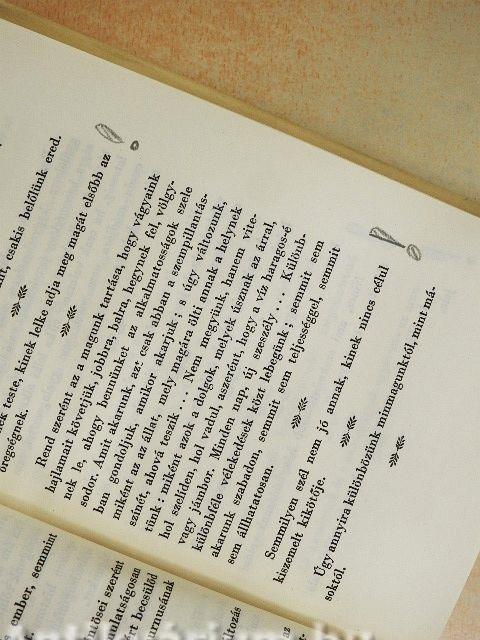 csakis belőlünk ered.
teste, kinek lelke adja meg magát elsőbb az
öregségnek.
Rend szerént az a magunk tartása, hogy vágyaink
hajlamait követjük, jobbra, balra, hegynek fel, völgy-
nek le, ahogy bennünket az alkalmatosságok szele
sodor. Amit akarunk, azt csak abban a szempillantás-
ban gondoljuk, amikor akarjuk; s úgy változunk,
miként az az állat, mely magára ölti annak a helynek
színét, ahová teszik ... Nem megyünk, hanem vite-
tünk: miként azok a dolgok, melyek úsznak az árral,
hol szelíden, hol vadul, aszerént, hogy a víz haragos-é
vagy jámbor. Minden nap, új szeszély ... Különb-
különbféle vélekedések közt lebegünk; semmit sem
akarunk szabadon, semmit sem teljességgel, semmit
sem állhatatosan.
Semmilyen szél nem jó annak, kinek nincs célul
kiszemelt kikötője.
Úgy annyira különbözünk minmagunktól, mint má-
soktól.
ember, semmint
szerént
mulatságosan
becsülöd